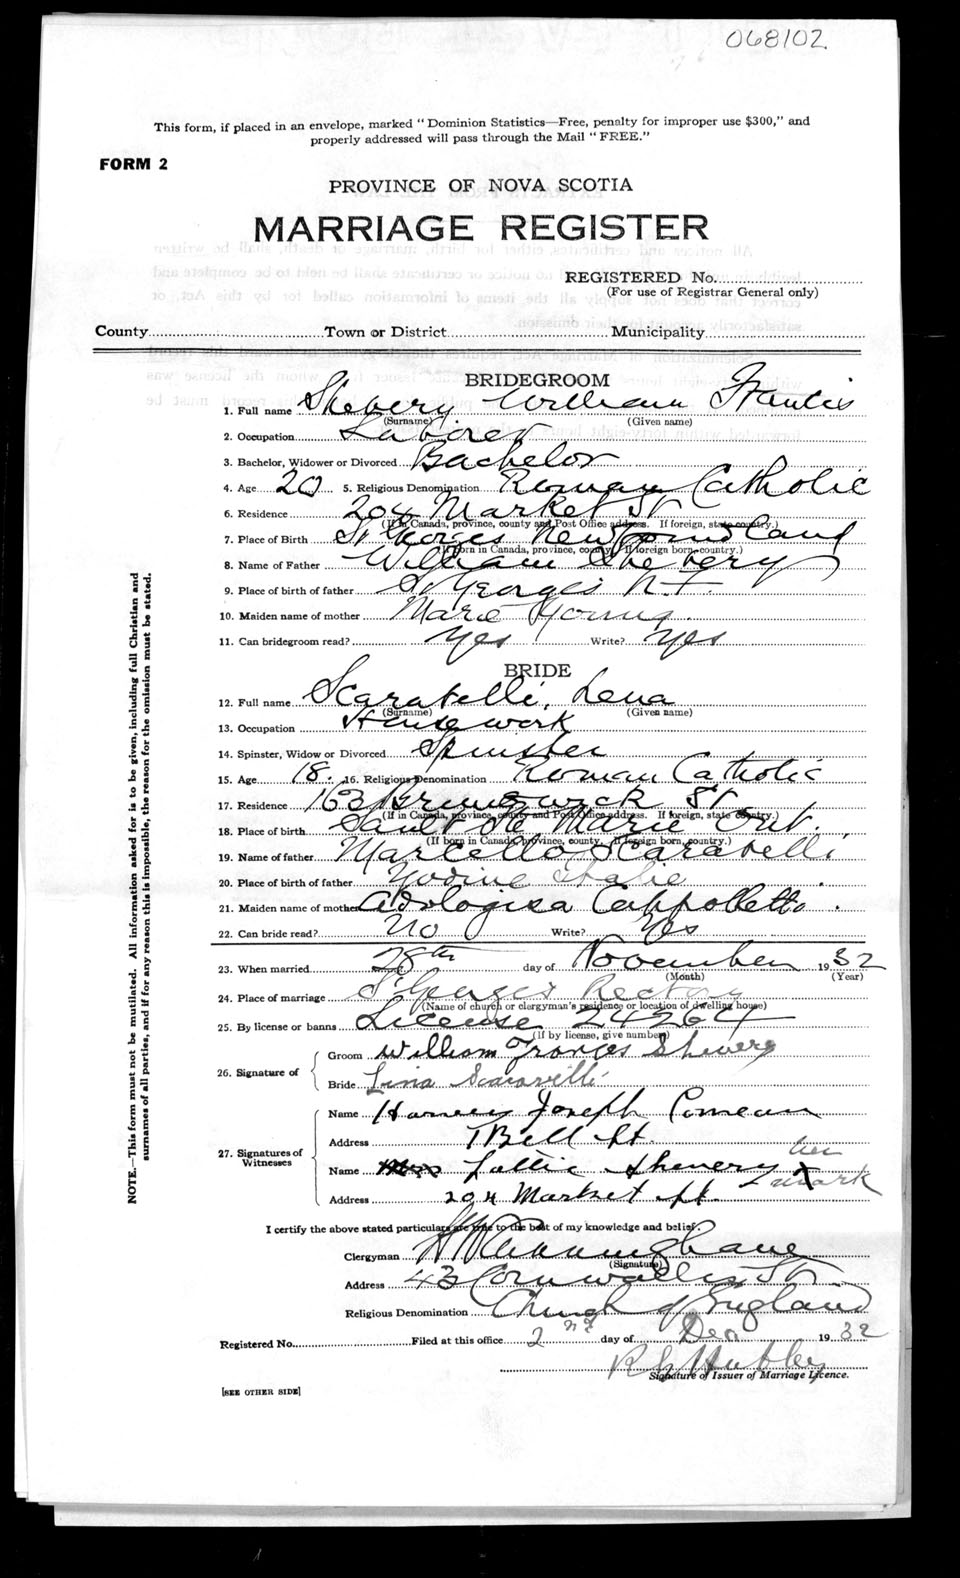 068102
This form, if placed in an envelope, marked "Dominion Statistics—Free, penalty for improper use $300," and
properly addressed will pass through the Mail "FREE."
FORM 2
PROVINCE OF NOVA SCOTIA
MARRIAGE REGISTER
REGISTERED No.
(For use of Registrar General only)
County Town or District Municipality
BRIDEGROOM
1. Full name Shevery William Francis
(Surname) (Given name)
2. Occupation Laborer
3. Bachelor, Widower or Divorced Bachelor
4. Age 20 5. Religious Denomination Roman Catholic
6. Residence 204 Market St
(If in Canada, province, county and Post Office address. If foreign, state country.)
7. Place of Birth St Georges Newfoundland
(If born in Canada, province, county. If foreign born—country.)
8. Name of Father William Shevery
9. Place of birth of father St Georges N.F.
10. Maiden name of mother Marie Young
11. Can bridegroom read? Yes Write? Yes
BRIDE
12. Full name Scaratelli, Lena
(Surname) (Given name)
13. Occupation Housework
14. Spinster, Widow or Divorced Spinster
15. Age 18. 16. Religious Denomination Roman Catholic
17. Residence 163 Brunswick St
(If in Canada, province, county and Post Office address. If foreign, state country.)
18. Place of birth Sault Ste Marie Ont.
(If born in Canada, province, county. If foreign born—country.)
19. Name of father Marcello Scaratelli
20. Place of birth of father Italie
21. Maiden name of mother Cappolletto.
22. Can bride read? No Write? Yes
23. When married 28th day of November 1932
(Month) (Year)
24. Place of marriage St Georges Rectory
(Name of church or clergyman's residence or location of dwelling house)
25. By license or banns License 24264
(If by license, give number)
26. Signature of
Groom William Frances Shevery
Bride Lina Scaravilli
27. Signatures of Witnesses
Name Harvey Joseph Comeau
Address 7 Bell St.
Name Lottie Shevery her X mark
Address 204 Market St.
I certify the above stated particulars are true to the best of my knowledge and belief.
Clergyman H W Cunningham
(Signature)
Address 43 Cornwallis St.
Religious Denomination Church of England
Registered No. Filed at this office 2nd day of Dec 1932
Signature of Issuer of Marriage Licence.
[SEE OTHER SIDE]
NOTE.—This form must not be mutilated. All information asked for is to be given, including full Christian and
surnames of all parties, and if for any reason this is impossible, the reason for the omission must be stated.